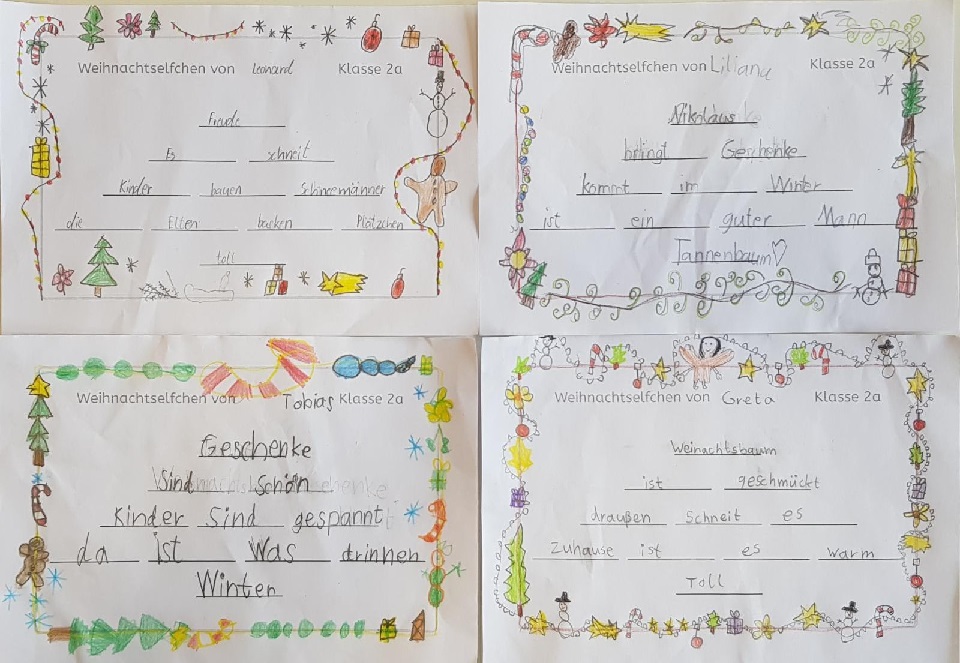 Weihnachtselfchen von Leonard Klasse 2a
Freude
Es schneit
Kinder bauen Schneemänner
die Elten backen Plätzchen
toll
Weihnachtselfchen von Liliana Klasse 2a
Nikolaus
bringt Geschenke
kommt im Winter
ist ein guter Mann
Tannenbaum
Weihnachtselfchen von Tobias Klasse 2a
Geschenke
Sind Schön
Kinder Sind gespannt
da ist Was drinnen
Winter
Weihnachtselfchen von Greta Klasse 2a
Weinachtsbaum
ist geschmückt
draußen Schneit es
Zuhause ist es warm
Toll